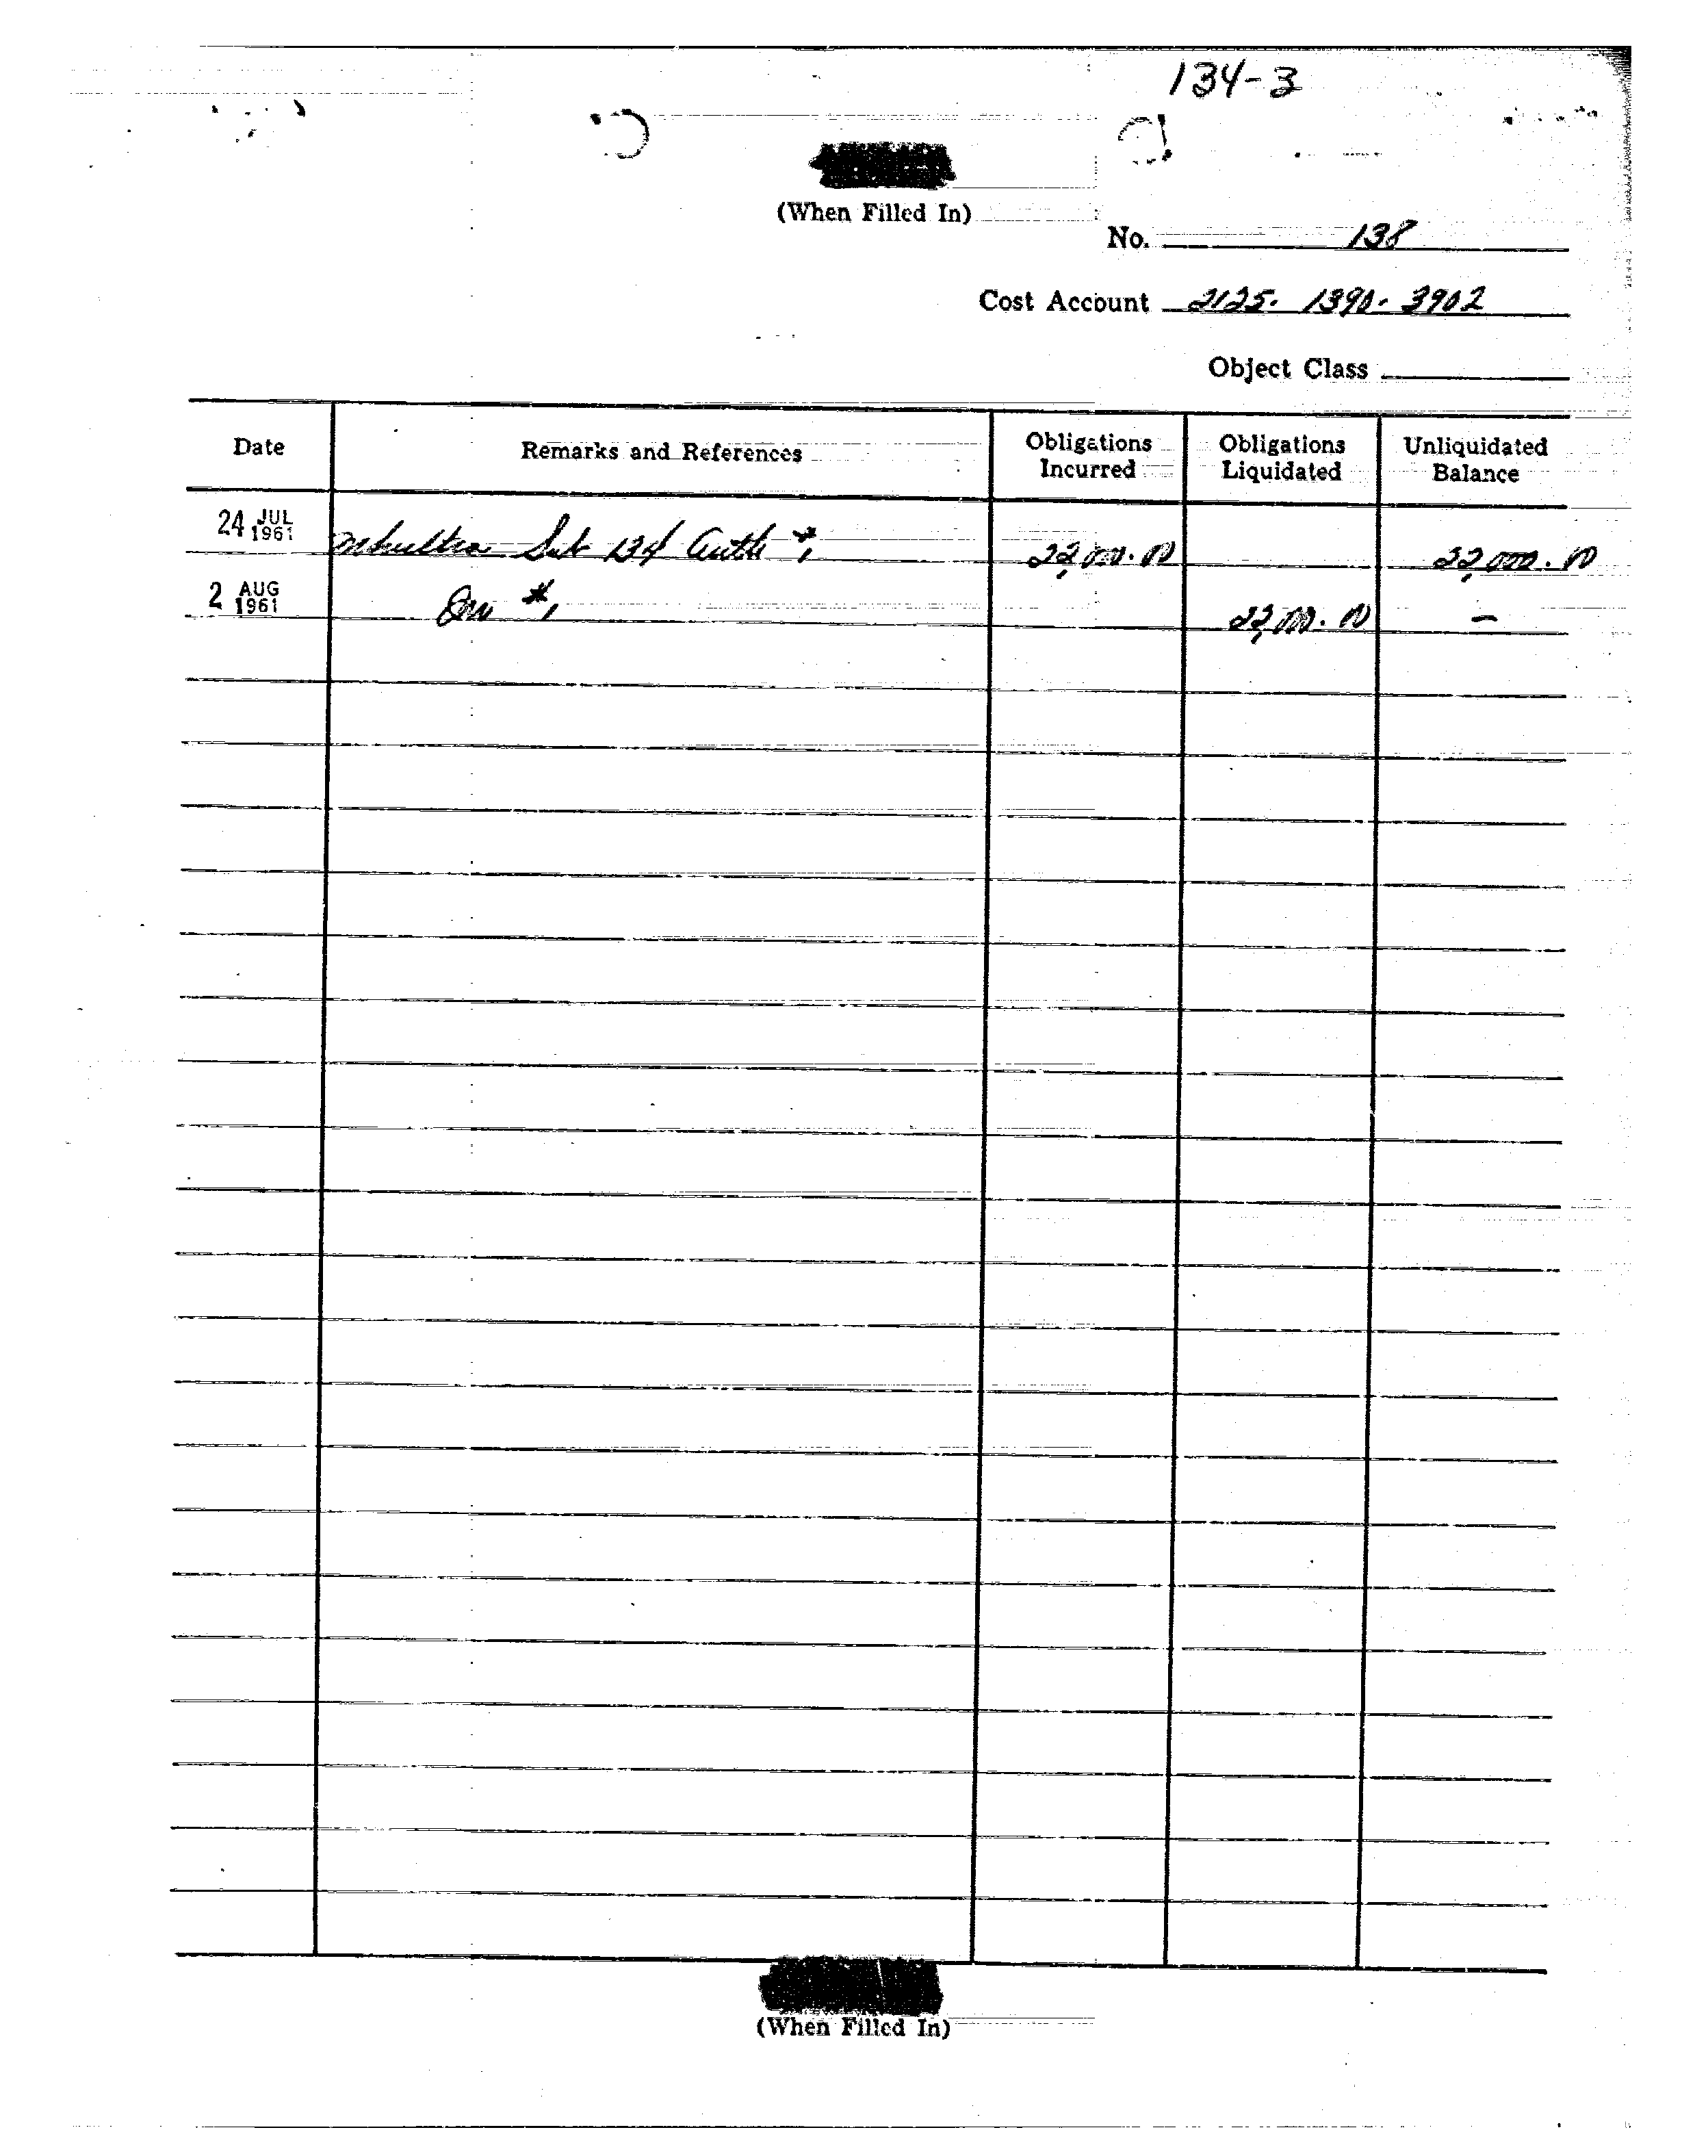 134-3
(When Filled In)
No. 138
Cost Account 2125. 1390. 3902
Object Class
Date Remarks and References Obligations Incurred Obligations Liquidated Unliquidated Balance
24 JUL 1961 Mkultra Sub 134 Auth #1 22,000.00 22,000.00
2 AUG 1961 Inv #1 22,000.00 –
(When Filled In)